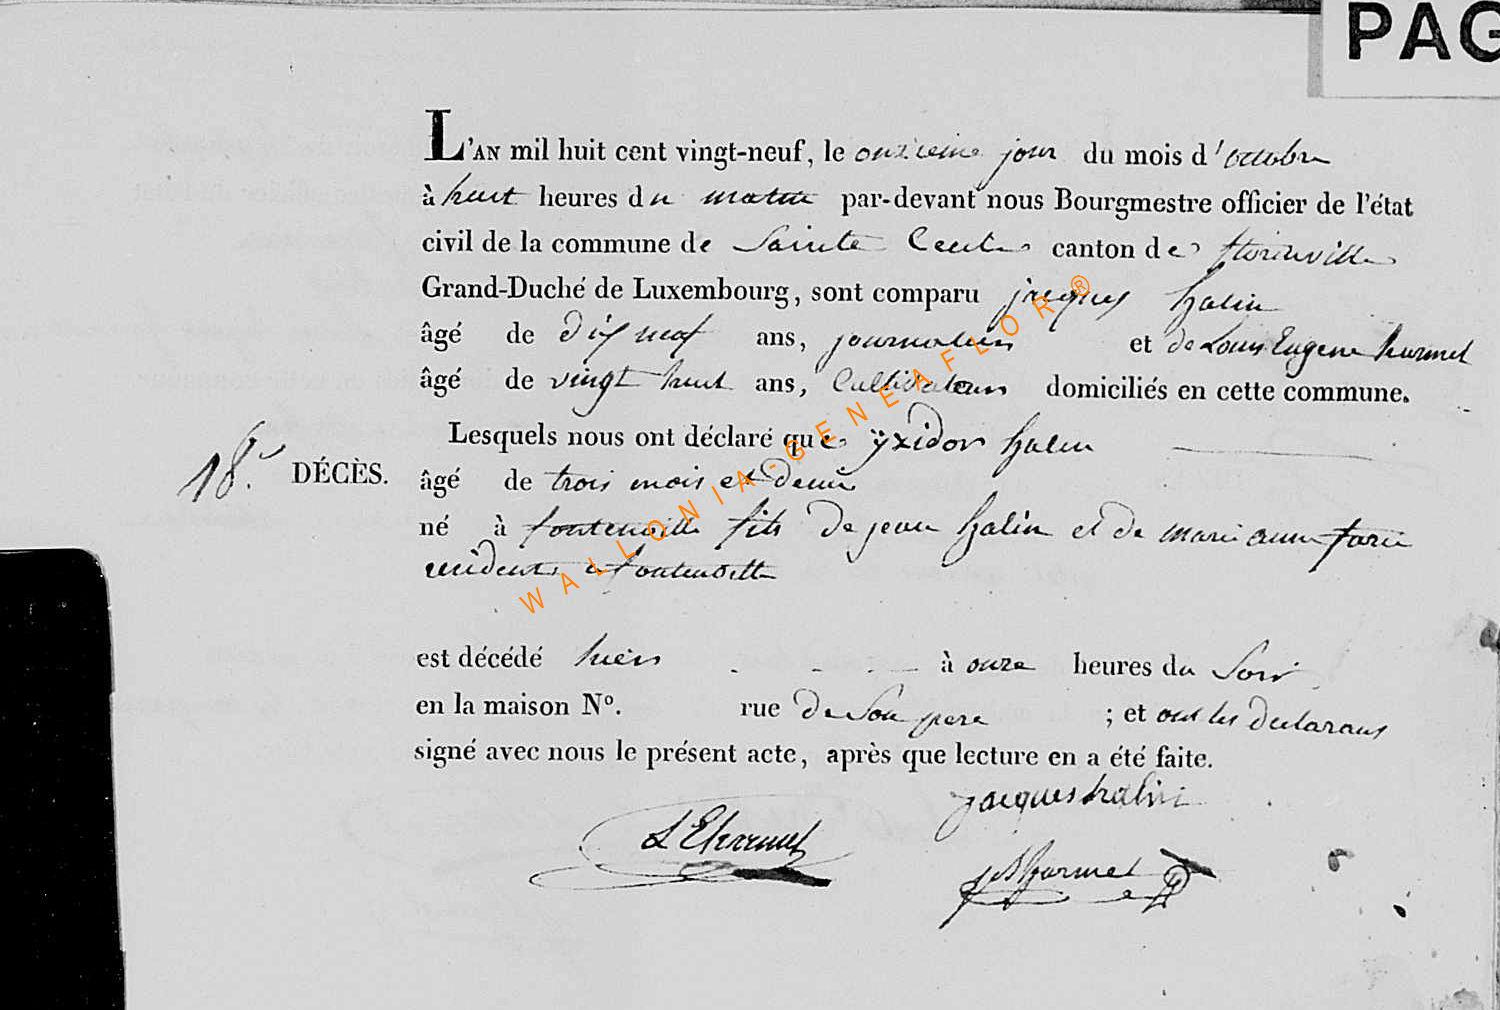 PAG
L'AN mil huit cent vingt-neuf, le onzieme jour du mois d'octobre
à huit heures du matin par-devant nous Bourgmestre officier de l'état
civil de la commune de Sainte Cecile canton de florenville
Grand-Duché de Luxembourg, sont comparu jacques halin
âgé de dix neuf ans, journalier et de Louis Eugene hermet
âgé de vingt huit ans, Cultivateur domiciliés en cette commune.
Lesquels nous ont déclaré que ÿzidor halin
18e. DÉCÈS.
âgé de trois mois et demie
né à fontenoille fils de jean halin et de marie anne
residents a fontenoille
est décédé hier à onze heures du Soir
en la maison N°. rue de Son pere ; et ont les declarans
signé avec nous le présent acte, après que lecture en a été faite.
jacques halin
WALLONIA-GENEAFLOR®